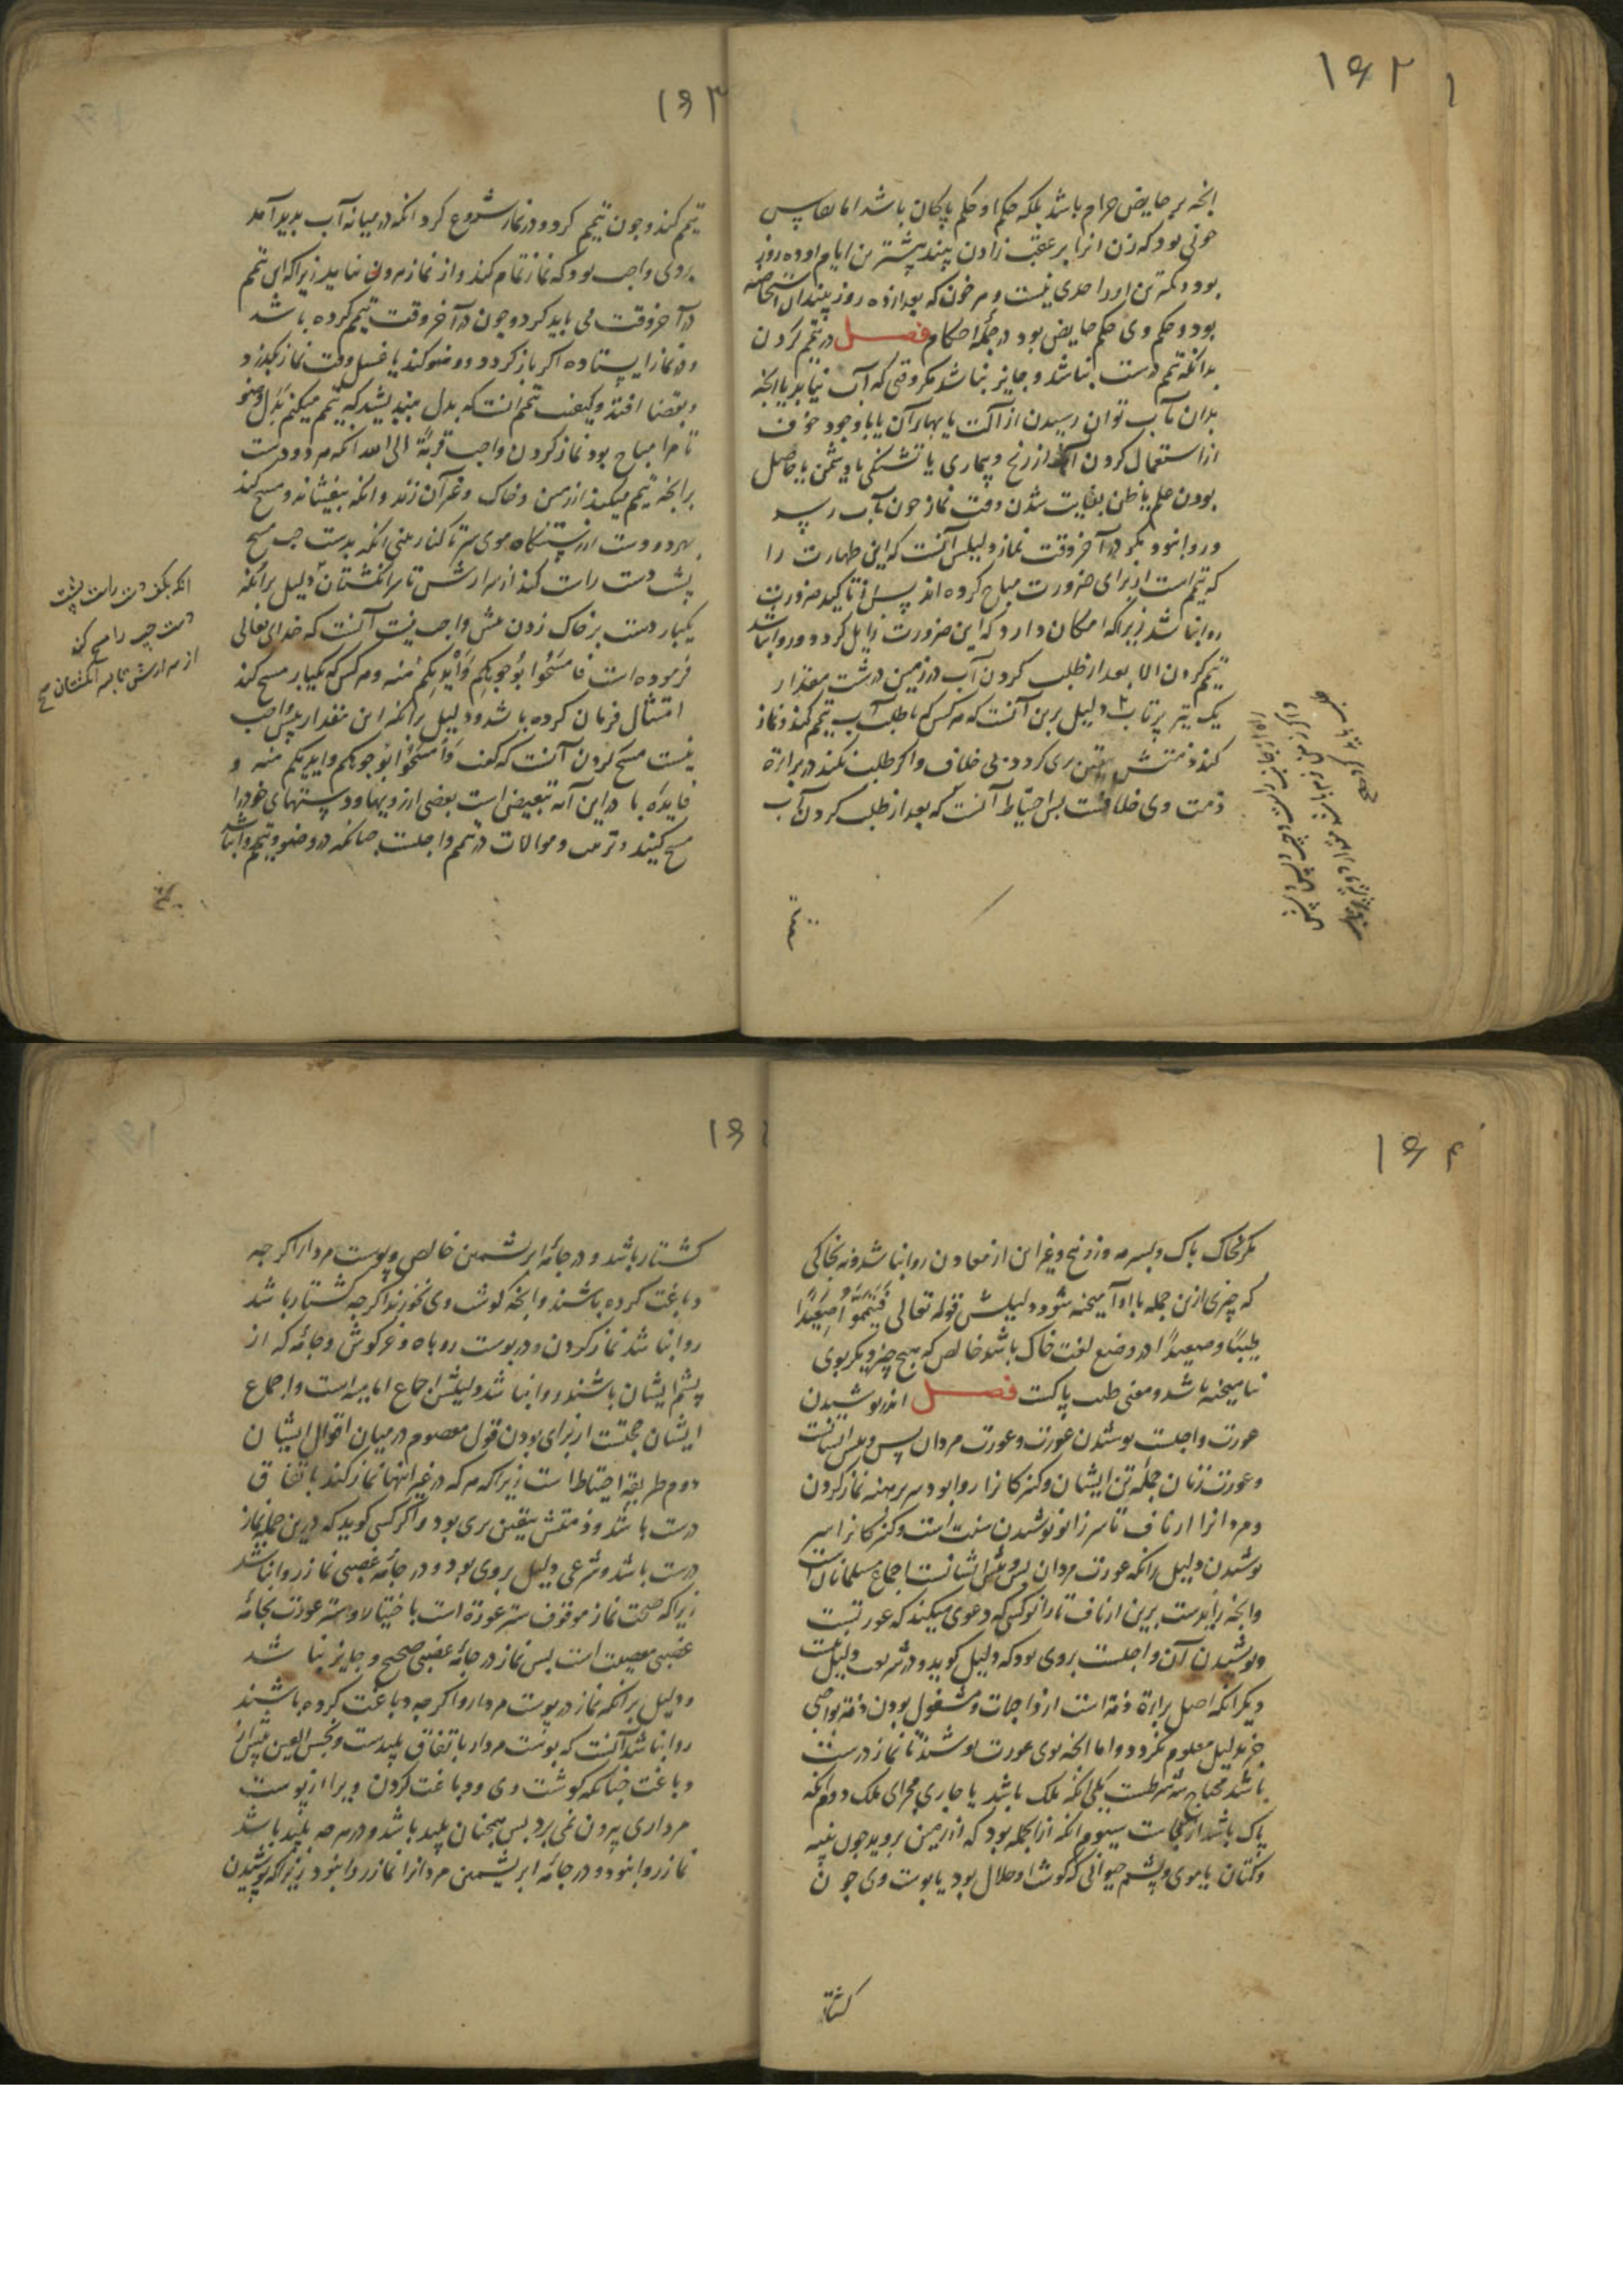 ۱۶۲
انچه بر حایض حرام باشد بلکه حکم او حکم پاکان باشد اما نفاس
خونی بود که زن انرا بر عقب زادن بیند بیشترین ایام او ده روز
بود و کمترین او را حدی نیست و هر خون که بعد از ده روز بیند ان استحاضه
بود و حکم وی حکم حایض بود در جمله احکام فصل در تیمم کردن
بدانکه تیمم درست نباشد و جایز نباشد مکر وقتی که آب نیابد یا انچه
بدان بآب توان رسیدن از آلت یا بهاء آن یا با وجود خوف
از استعمال کردن از رنج و بیماری یا تشنکی یا دشمن یا حاصل
بودن علم یا ظن بغایت شدن وقت نماز چون بآب رسد
و روا نبود مکر در آخر وقت نماز و دلیلش آنست که این طهارت را
که تیمم است از برای ضرورت مباح کرده اند پس تا کید ضرورت
روا نباشد زیرا که امکان دارد که این ضرورت زایل کردد و روا نباشد
تیمم کردن الا بعد از طلب کردن آب در زمین درشت مقدار
یک تیر پرتاب دلیل برین آنست که هر کس که با طلب آب تیمم کند و نماز
کند ذمتش بیقین بری کردد بی خلاف و اکر طلب نکند در براءة
ذمت وی خلافست پس احتیاط آنست که بعد از طلب کردن آب
تیمم
۱۶۳
تیمم کند و چون تیمم کرد و در نماز شروع کرد انکه در میانه آب بدید آمد
بر وی واجب بود که نماز تمام کند و از نماز بیرون نیاید زیرا که این تیمم
در آخر وقت می باید کرد و چون در آخر وقت تیمم کرده باشد
و در نماز ایستاده اکر باز کردد و وضو کند یا غسل وقت نماز بکذرد
و بقضا افتد و کیفیت تیمم انست که بدل بیندیشد که تیمم میکنم بدل وضو
تا مرا مباح بود نماز کردن واجب قربة الی الله انکه هر دو دست
بر انچه تیمم میکند از زمین و خاک و غیر آن زند و انکه بیفشاند و مسح کند
بهر دو دست از رستنکاه موی سر تا کنار بینی انکه بدست چپ مسح
پشت دست راست کند از سر ارش تا سر انکشتان دلیل بر انکه
یکبار دست بر خاک زدن بیش واجب نیست آنست که خدای تعالی
فرموده است فَامْسَحُوا بِوُجُوهِكُمْ وَأَيْدِيكُمْ مِنْهُ و هر کس که یکبار مسح کند
امتثال فرمان کرده باشد و دلیل بر انکه این مقدار بیش واجب
نیست مسح کردن آنست که کفت وَامْسَحُوا بوجوهکم وایدیکم منه و
فایده با در این آیه تبعیض است بعضی از رویها و دستهای خود را
مسح کنید و ترتیب و موالات در تیمم واجبست چنانکه در وضو و تیمم روا نباشد
انکه بکف دست راست پشت
دست چپ را مسح کند
۱۶۴
مکر بخاک پاک و بسرمه و زرنیخ و غیر این از معادن روا نباشد و نه بخاکی
که چیزی ازین جمله با او آمیخته شود و دلیلش قوله تعالی فَتَيَمَّمُوا صَعِيدًا
طَيِّبًا و صعیدًا در وضع لغت خاک باشد خالص که هیچ چیز دیکر بوی
نیامیخته باشد و معنی طیب پاکست فصل اندر پوشیدن
عورت واجبست پوشیدن عورت و عورت مردان پس و پیش ایشانست
و عورت زنان جمله تن ایشان و کنیزکانرا روا بود سر برهنه نماز کردن
و مردانرا از ناف تا سر زانو پوشیدن سنت است و کنیزکانرا سر
پوشیدن و دلیل بر انکه عورت مردان پس و پیش ایشانست اجماع مسلمانان است
وانچه زایدست برین از ناف تا زانو کسی که دعوی میکند که عورتست
و پوشیدن آن واجبست بروی بود که دلیل کوید و در شرع دلیل نیست
دیکر انکه اصل براءة ذمه است از واجبات و مشغول بودن ذمه بواجبی
جز بدلیل معلوم نکردد و اما انچه بوی عورت پوشند تا نماز درست
باشد محتاج سه شرطست یکی انکه ملک باشد یا جاری مجرای ملک دوم انکه
پاک باشد از نجاست سیوم انکه از انجمله بود که از زمین بروید چون پنبه
و کتان یا موی و پشم حیوانی که کوشت او حلال بود یا پوست وی چون
کشتار
کشتار باشد و در جامه ابریشمین خالص و پوست مردار اکر چه
دباغت کرده باشند وانچه کوشت وی نخورند اکر چه کشتار باشد
روا نباشد نماز کردن و در پوست روباه و خرکوش و جامه که از
پشم ایشان باشند روا نباشد و دلیلش اجماع امامیه است و اجماع
ایشان حجتست از برای بودن قول معصوم در میان اقوال ایشان
دوم طریقه احتیاط است زیرا که هر که در غیر اینها نماز کند باتفاق
درست باشد و ذمتش بیقین بری بود و اکر کسی کوید که درین جمله نماز
درست باشد و شرعی دلیل بر وی بود و در جامه غصبی نماز روا نباشد
زیرا که صحت نماز موقوف ستر عورة است باختیار و ستر عورت بجامه
غصبی معصیت است پس نماز در جامه غصبی صحیح و جایز نباشد
و دلیل بر انکه نماز در پوست مردار و اکر چه دباغت کرده باشند
روا نباشد آنست که پوست مردار باتفاق پلیدست و نجس العین پیش از
دباغت چنانکه کوشت وی و دباغت کردن ویرا از پوست
مرداری بیرون نمی برد پس همچنان پلید باشد و در هر چه پلید باشد
نماز روا نبود و در جامه ابریشمین مردانرا نماز روا نبود زیرا که پوشیدن